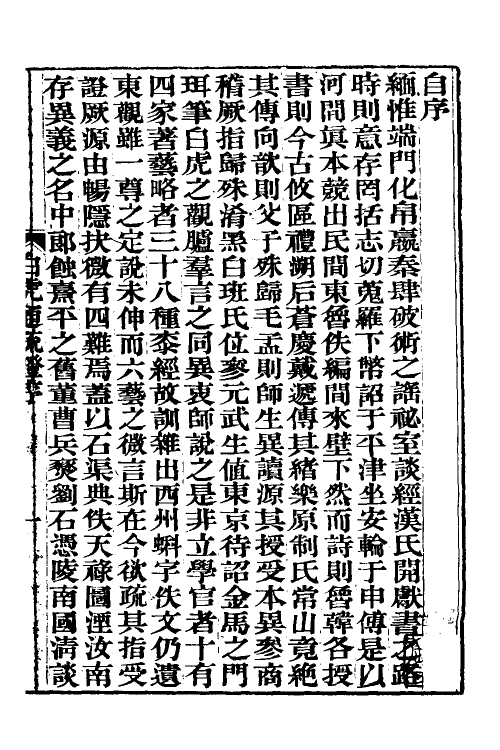 自序
緬惟端門化帛嬴秦肆破術之謡祕室談經漢氏開獻書之路
時則意存罔括志切蒐羅下幣詔于平津坐安輪于申傅是以
河間眞本競出民間東魯佚編間來壁下然而詩則魯韓各授
書則今古攸區禮溯后蒼慶戴遞傳其緒樂原制氏常山竟絶
其傳向歆則父子殊歸毛孟則師生異讀源其授受本異參商
稽厥指歸殊淆黑白班氏位參元武生値東京待詔金馬之門
珥筆白虎之觀臚羣言之同異衷師說之是非立學官者十有
四家著藝略者三十八種桼經故訓雜出西州蝌字佚文仍遺
東觀雖一尊之定說未伸而六藝之微言斯在今欲疏其指受
證厥源由暢隱抉微有四難焉蓋以石渠典佚天祿圖湮汝南
存異義之名中郎蝕熹平之舊董曹兵燹劉石憑陵南國清談
白虎通疏證序
一